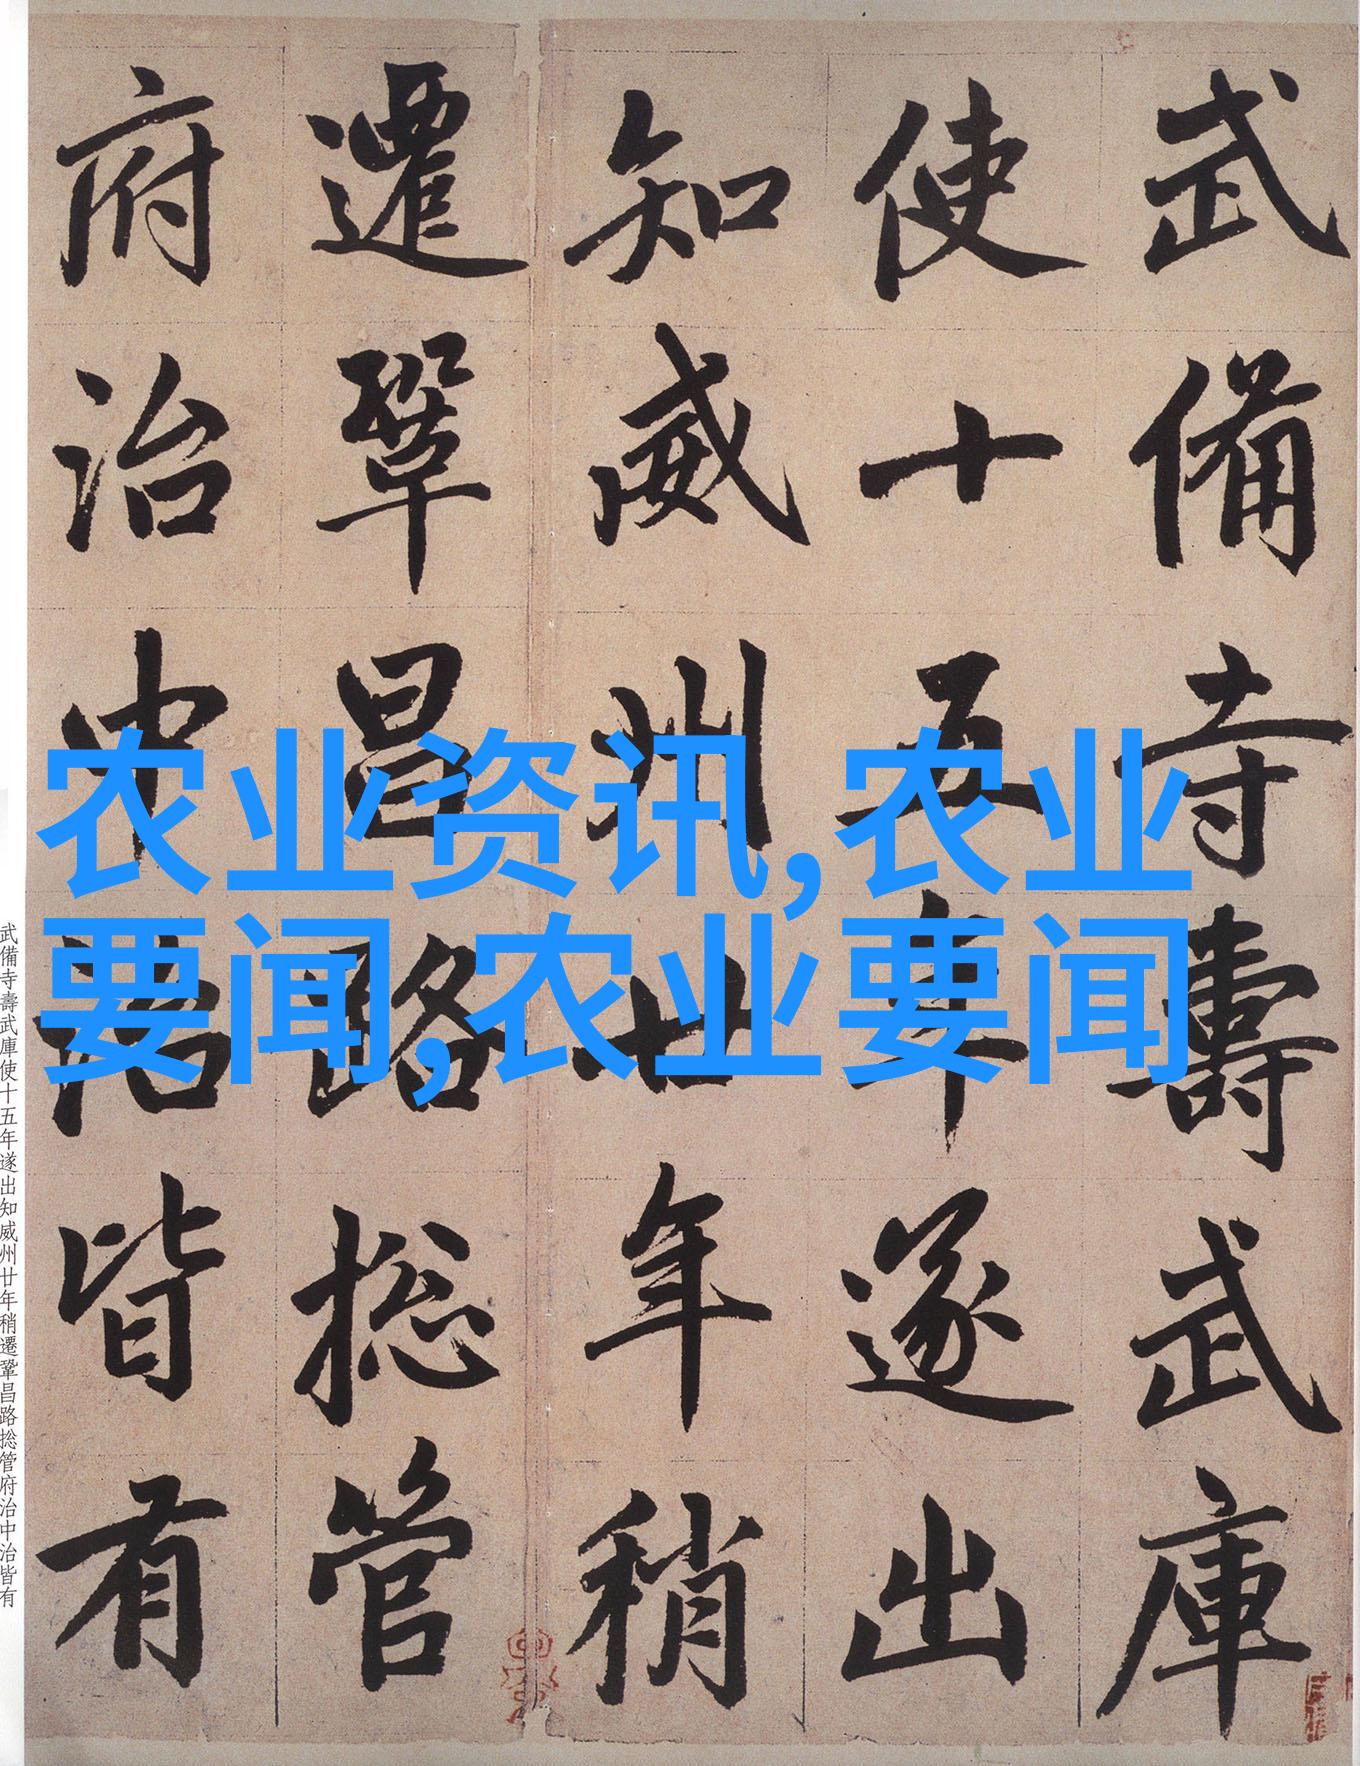 武備寺壽武庫
使十五年遂出
知威州廿年稍
遷鞏昌路捴管
府治中治皆有
农业资讯,农业
要闻,农业要闻
武備寺壽武庫使十五年遂出知威州廿年稍遷鞏昌路捴管府治中治皆有